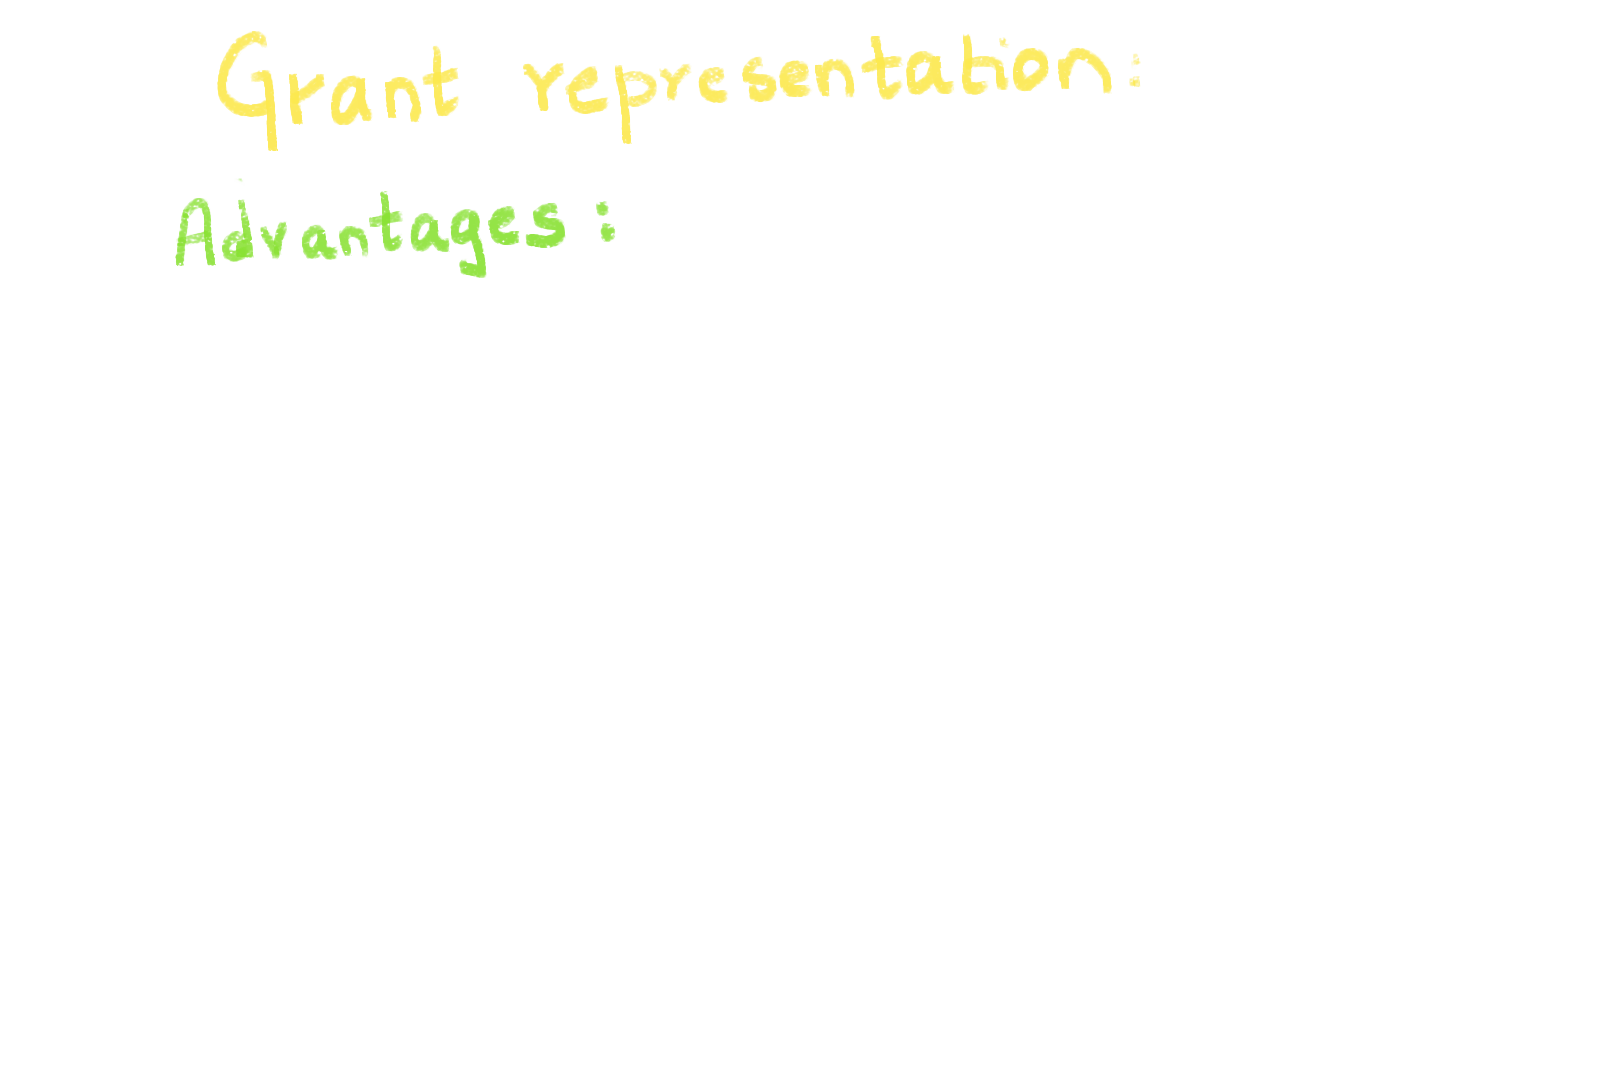 Grant representation:
Advantages: